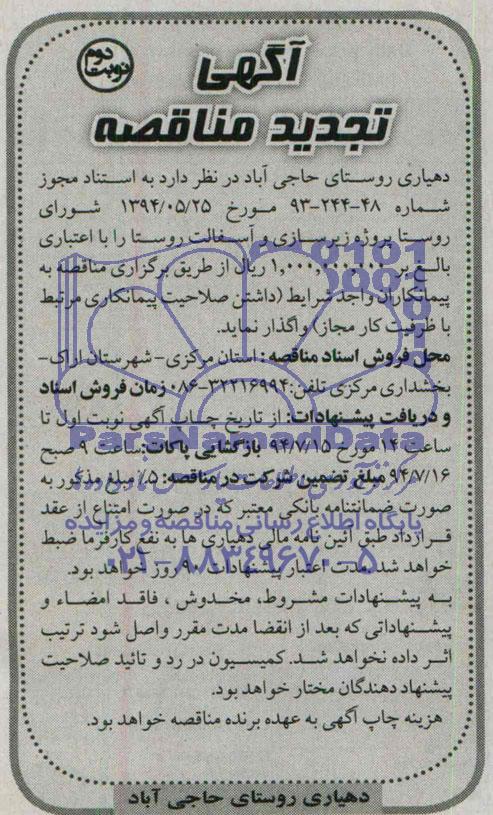 نوبت دوم
آگهی
تجدید مناقصه
دهیاری روستای حاجی آباد در نظر دارد به استناد مجوز
شماره ۴۸-۲۴۴-۹۳ مورخ ۱۳۹۴/۰۵/۲۵ شورای
روستا پروژه زیرسازی و آسفالت روستا را با اعتباری
بالغ بر ۱,۰۰۰,۰۰۰,۰۰۰ ریال از طریق برگزاری مناقصه به
پیمانکاران واجد شرایط (داشتن صلاحیت پیمانکاری مرتبط
با ظرفیت کار مجاز) واگذار نماید.
محل فروش اسناد مناقصه: استان مرکزی- شهرستان اراک-
بخشداری مرکزی تلفن: ۳۲۲۱۶۹۹۴-۰۸۶ زمان فروش اسناد
و دریافت پیشنهادات: از تاریخ چاپ آگهی نوبت اول تا
ساعت ۱۴ مورخ ۹۴/۷/۱۵ بازگشایی پاکات: ساعت ۹ صبح
۹۴/۷/۱۶ مبلغ تضمین شرکت در مناقصه: ۵٪ مبلغ مذکور به
صورت ضمانتنامه بانکی معتبر که در صورت امتناع از عقد
قرارداد طبق آئین نامه مالی دهیاری ها به نفع کارفرما ضبط
خواهد شد. مدت اعتبار پیشنهادات ۹۰ روز خواهد بود.
به پیشنهادات مشروط، مخدوش ، فاقد امضاء و
پیشنهاداتی که بعد از انقضا مدت مقرر واصل شود ترتیب
اثر داده نخواهد شد. کمیسیون در رد و تائید صلاحیت
پیشنهاد دهندگان مختار خواهد بود.
هزینه چاپ آگهی به عهده برنده مناقصه خواهد بود.
دهیاری روستای حاجی آباد
ParsNamadData
پایگاه اطلاع رسانی مناقصه و مزایده
۰۲۱-۸۸۳۴۹۶۷۰-۵